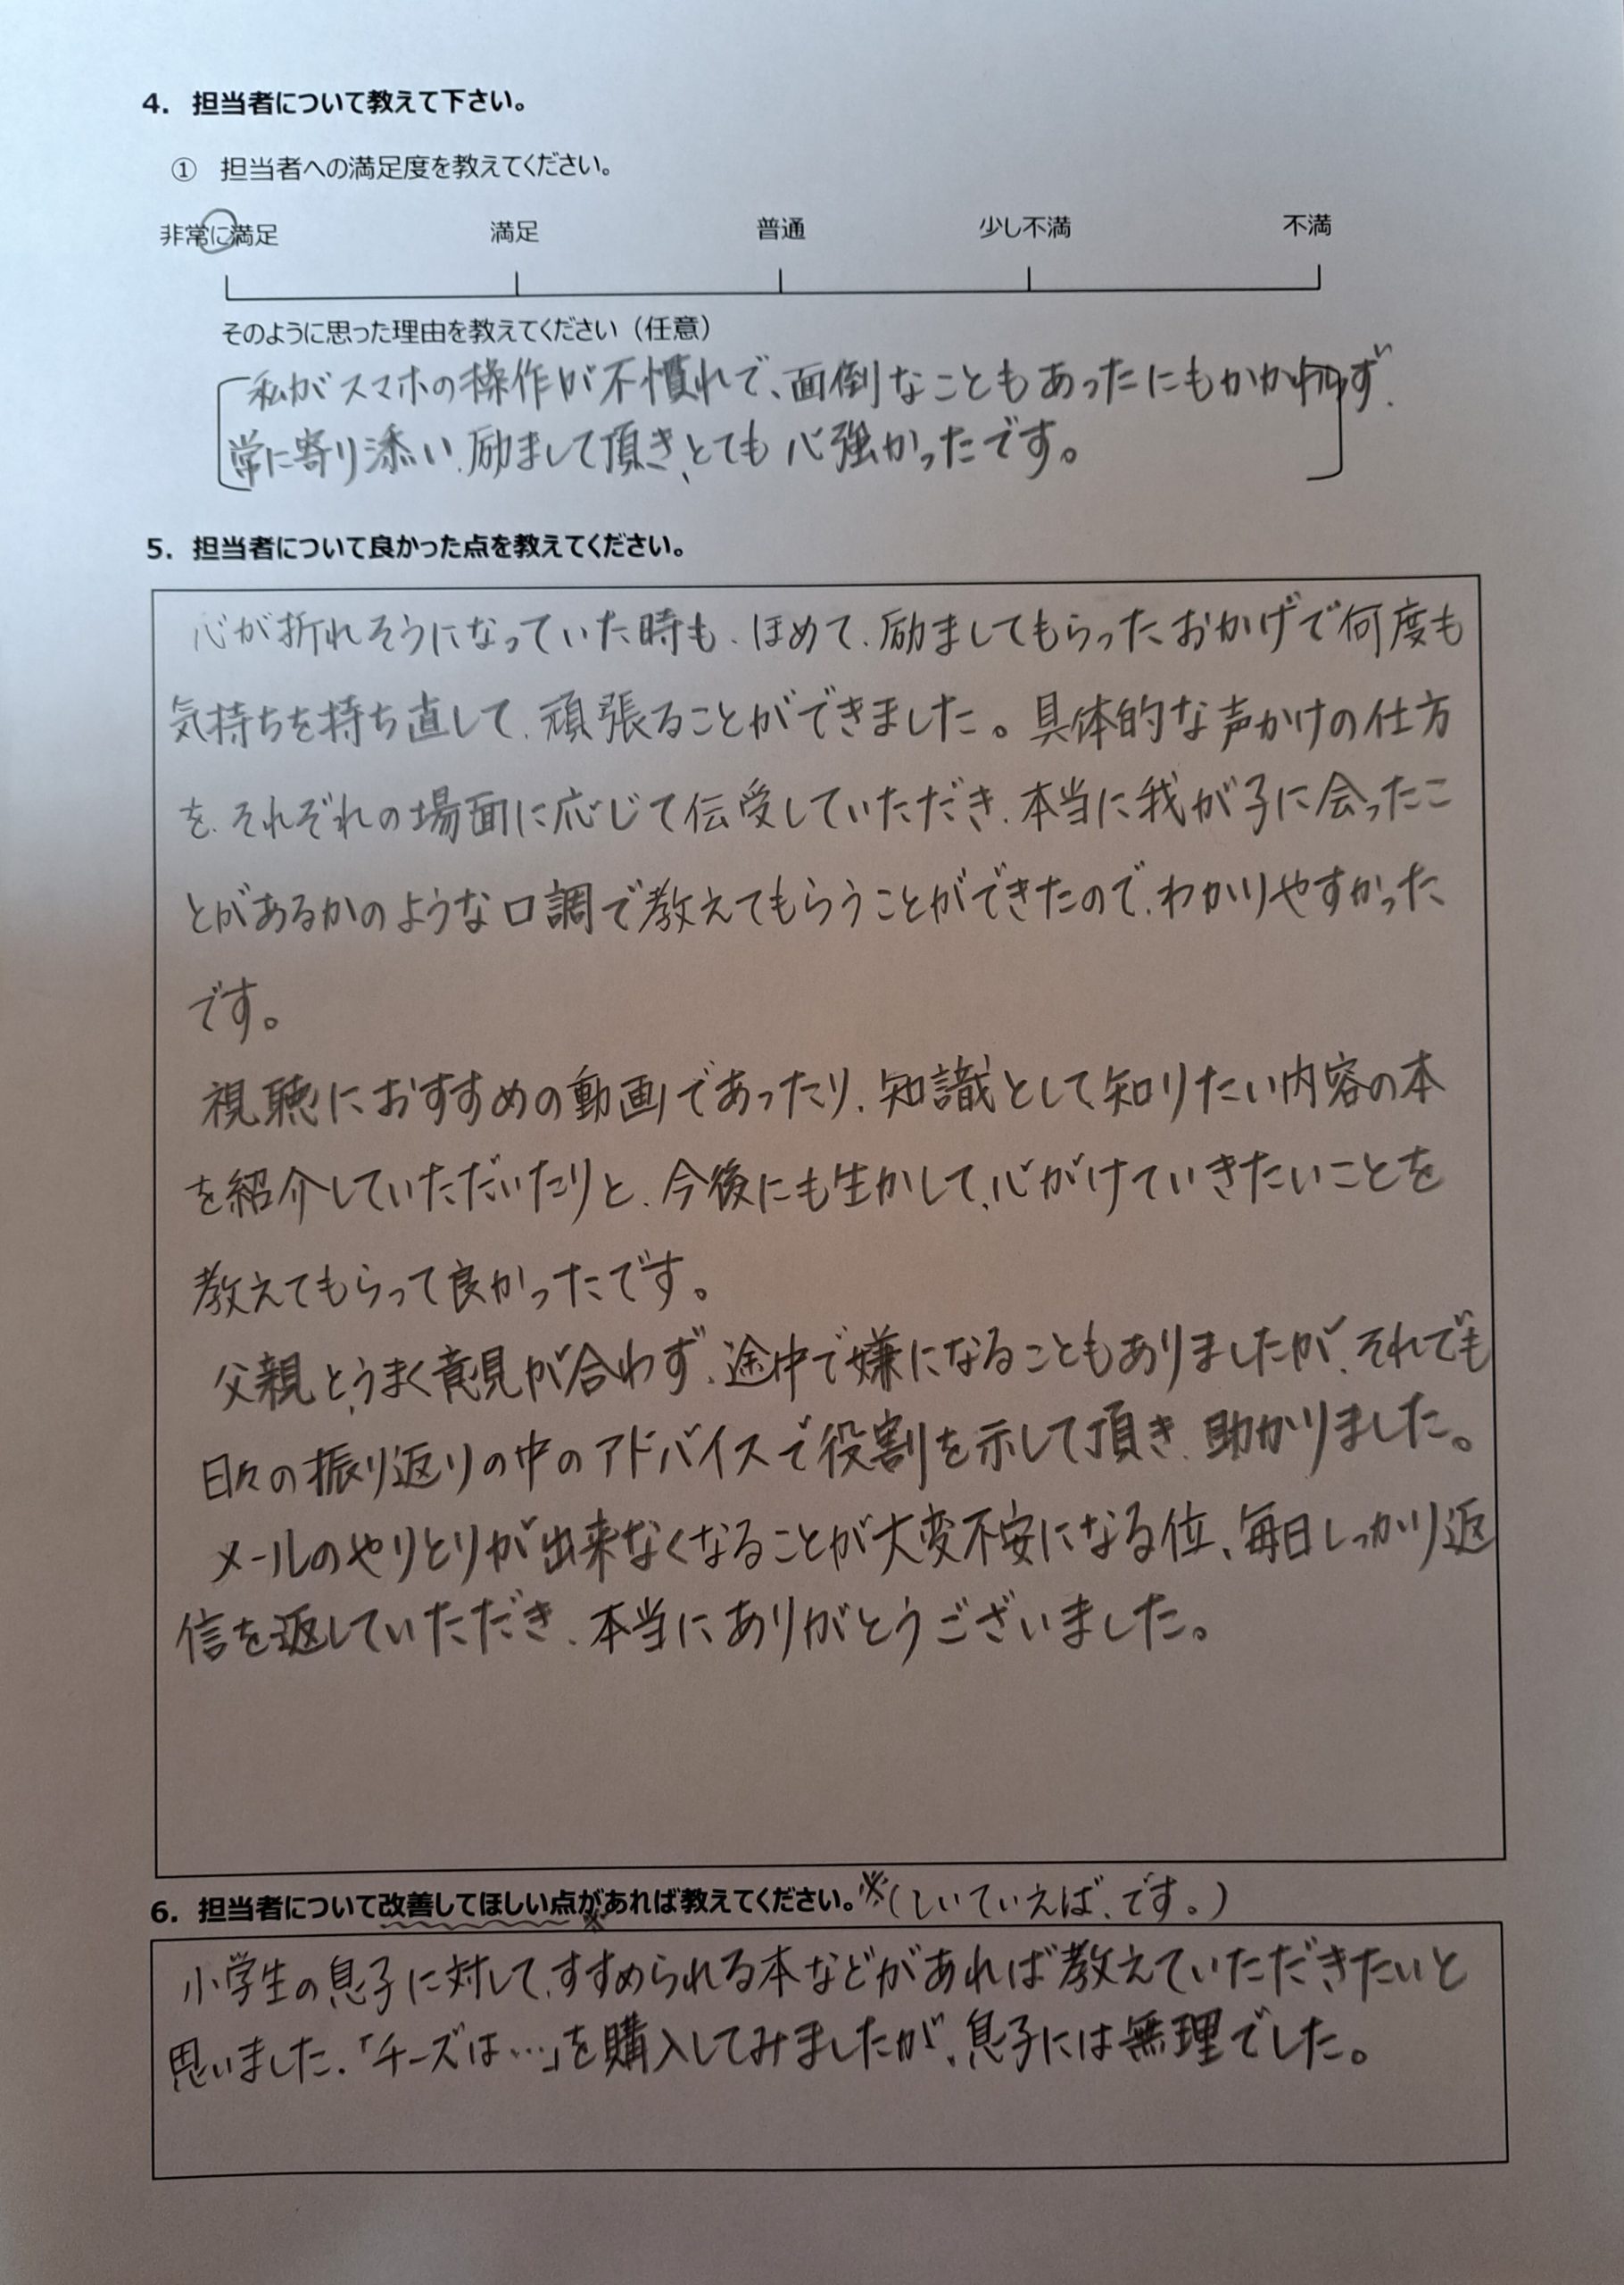 4. 担当者について教えて下さい。
① 担当者への満足度を教えてください。
非常に満足 満足 普通 少し不満 不満
そのように思った理由を教えてください（任意）
私がスマホの操作が不慣れで、面倒なこともあったにもかかわらず、
常に寄り添い、励まして頂き、とても心強かったです。
5. 担当者について良かった点を教えてください。
心が折れそうになっていた時も、ほめて、励ましてもらったおかげで何度も
気持ちを持ち直して、頑張ることができました。具体的な声かけの仕方
を、それぞれの場面に応じて伝受していただき、本当に我が子に会ったこ
とがあるかのような口調で教えてもらうことができたので、わかりやすかった
です。
視聴におすすめの動画であったり、知識として知りたい内容の本
を紹介していただいたりと、今後にも生かして、心がけていきたいことを
教えてもらって良かったです。
父親と、うまく意見が合わず、途中で嫌になることもありましたが、それでも
日々の振り返りの中のアドバイスで役割を示して頂き、助かりました。
メールのやりとりが出来なくなることが大変不安になる位、毎日しっかり返
信を返していただき、本当にありがとうございました。
6. 担当者について改善してほしい点があれば教えてください。※（しいていえば、です。）
小学生の息子に対して、すすめられる本などがあれば教えていただきたいと
思いました。「チーズは…」を購入してみましたが、息子には無理でした。